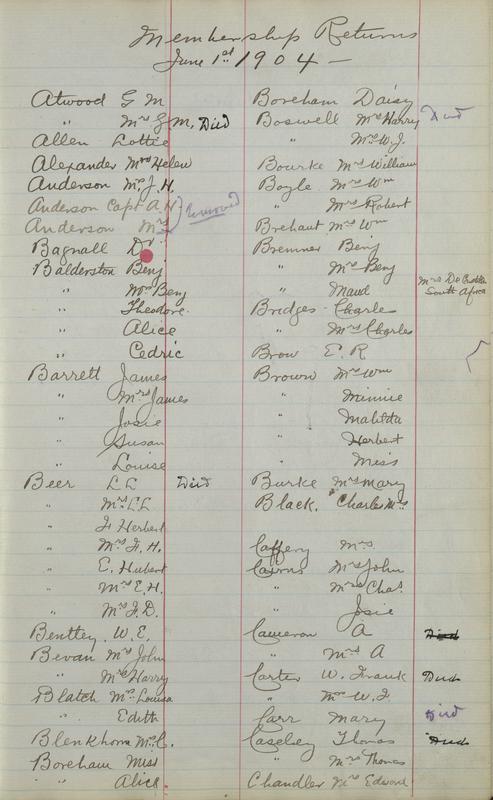 Membership Returns
June 1st 1904 —
Atwood G M
" Mrs G M, Died
Allen Lottie
Alexander Mrs Helen
Anderson Mrs J. H.
Anderson Capt A. H
Anderson Mrs
Removed
Bagnall Dr
Balderston Benj
" Mrs Benj
" Theodore
" Alice
" Cedric
Barrett James
" Mrs James
" Josie
" Susan
" Louise
Beer L L Died
" Mrs L L
" F Herbert
" Mrs F. H.
" E. Hubert
" Mrs E. H.
" Mrs F. D.
Bentley. W. E.
Bevan Mrs John
" Mrs Harry
Blatch Mrs Louisa
" Edith
Blenkhorn Mrs C.
Boreham Miss
" Alice
Boreham Daisy
Boswell Mrs Harry Died
" Mrs W. J.
Bourke Mrs William
Boyle Mrs Wm
" Mrs Robert
Brehaut Mrs Wm
Bremner Benj
" Mrs Benj
" Maud Mrs
South Africa
Bridges Charles
" Mrs Charles
Brow E. R
Brown Mrs Wm
" Minnie
" Matilda
" Herbert
" Miss
Burke Mrs Mary
Black, Charles Mrs
Caffery Mrs.
Cairns Mrs John
" Mrs Chas.
" Josie
Cameron A Died
" Mrs A
Carter W. Frank Died
" Mrs W. F.
Carr Mary Died
Caseley Thomas Died
" Mrs Thomas
Chandler Mrs Edward